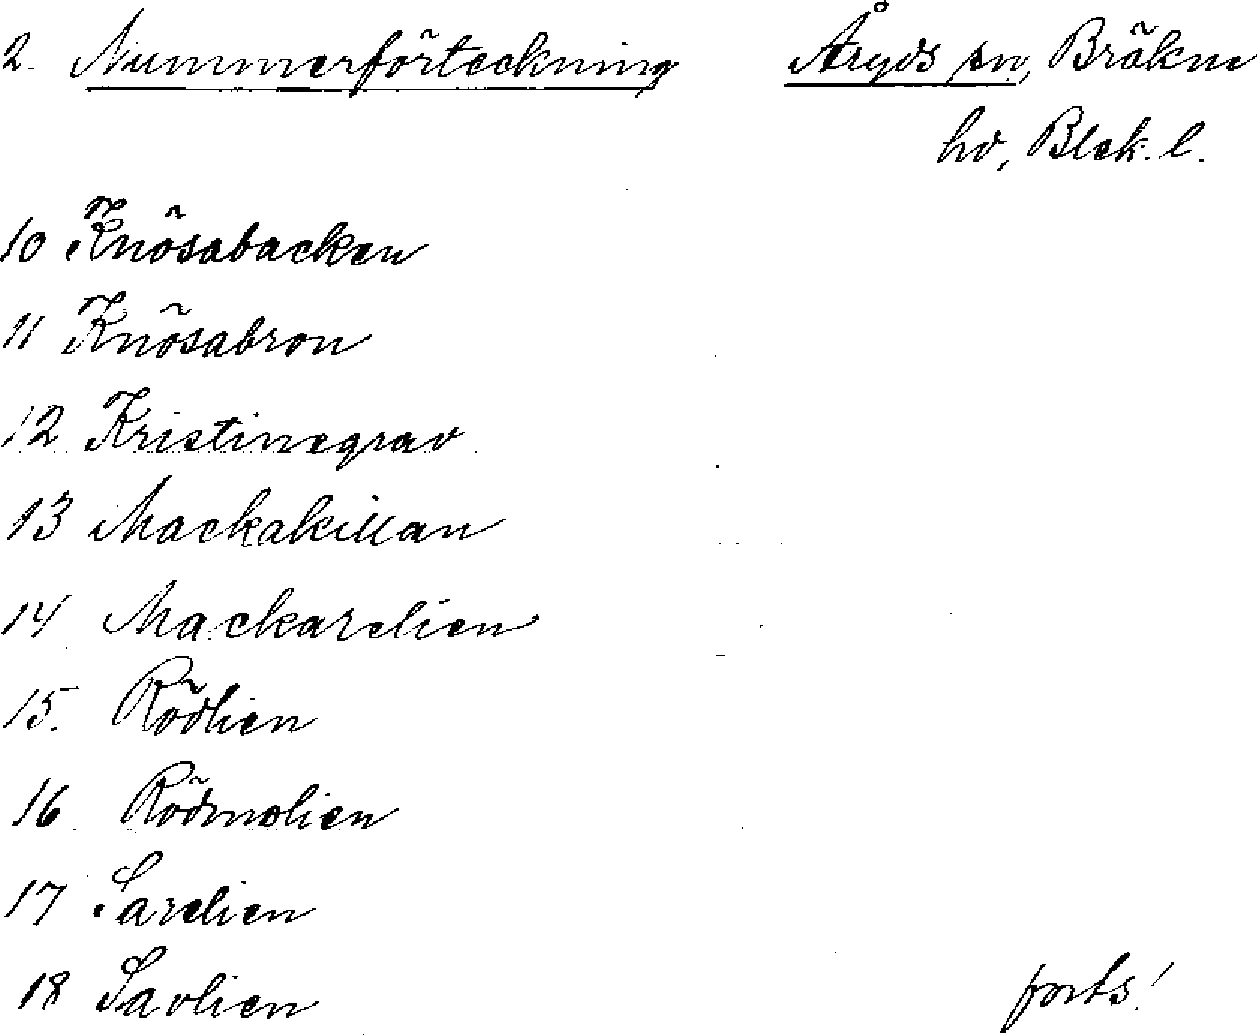 2. Nummerförteckning Åryds sn, Bräkne
hd, Blek. l.
10 Knösabacken
11 Knösabron
12 Kristinegrav
13 Mackakillan
14 Mackarelien
15. Rödlien
16 Rödmolien
17 Sarelien
18 Savlien
forts!